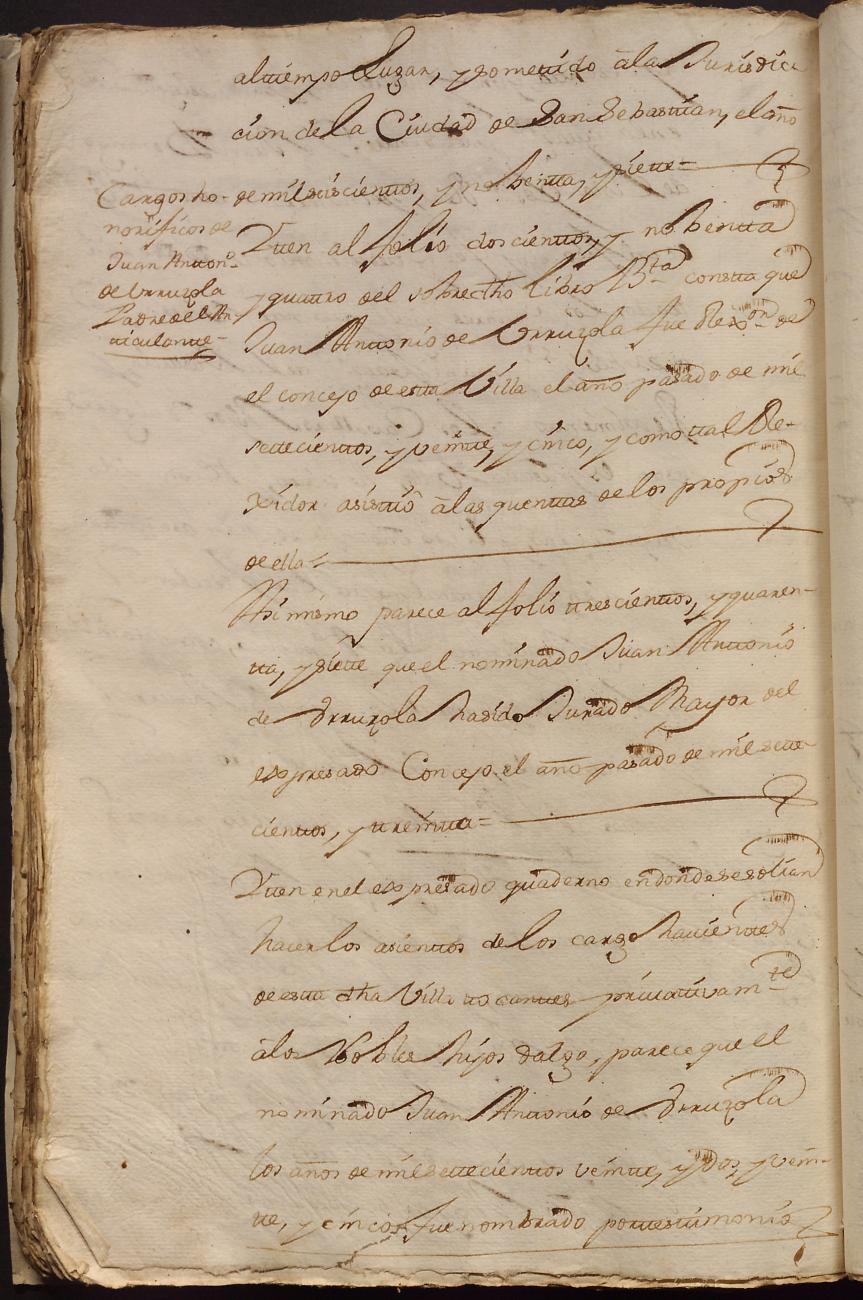 al tiempo lugar, y sometido à la Jurisdic
cion de la Ciudad de San Sebastian, el año
de mil seiscientos, y nobenta, y siete=
Cargos ho-
norificos de
Juan Anton.º
de Urruzola
Padre del Ar-
ticulante=
Yten al folio doscientos, y nobenta
y quatro del sobredho libro B.ta consta que
Juan Antonio de Urruzola fue Rex.on de
el concejo de esta Villa el año pasado de mil
setecientos, y veinte, y cinco, y como tal Re-
xidor asistió à las quentas de los propios
de ella=
Asi mismo parece al folio trescientos, y quaren-
ta, y siete que el nominado Juan Antonio
de Urruzola ha sido Jurado Mayor del
expresado Concejo el año pasado de mil sete-
cientos, y treinta=
Yten en el expresado quaderno en donde se solian
hacer los asientos de los cargo hacientes
de esta dha Villa tocantes privativam.te
à los Nobles hijos dalgo, parece que el
nominado Juan Antonio de Urruzola
los años de mil setecientos veinte, y dos, y vein-
te, y cinco fue nombrado por testimonio